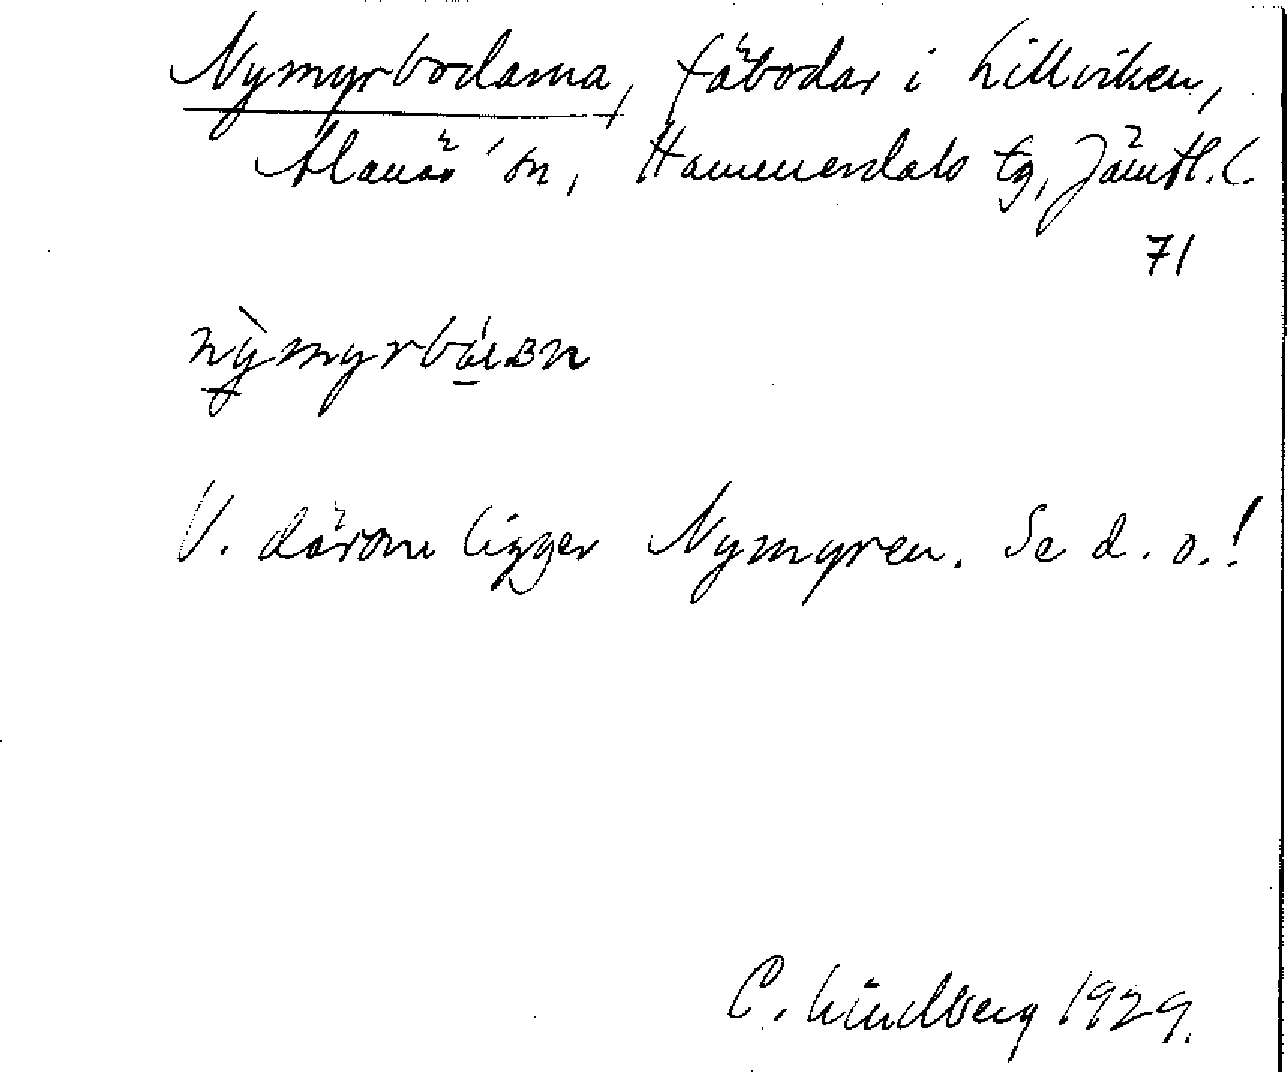 Nymyrbodarna, fäbodar i Lillviken,
Alanäs' sn, Hammerdals tg, Jämtl. l.
71
V. därom ligger Nymyren. Se d. o.!
C. Lindberg 1929.